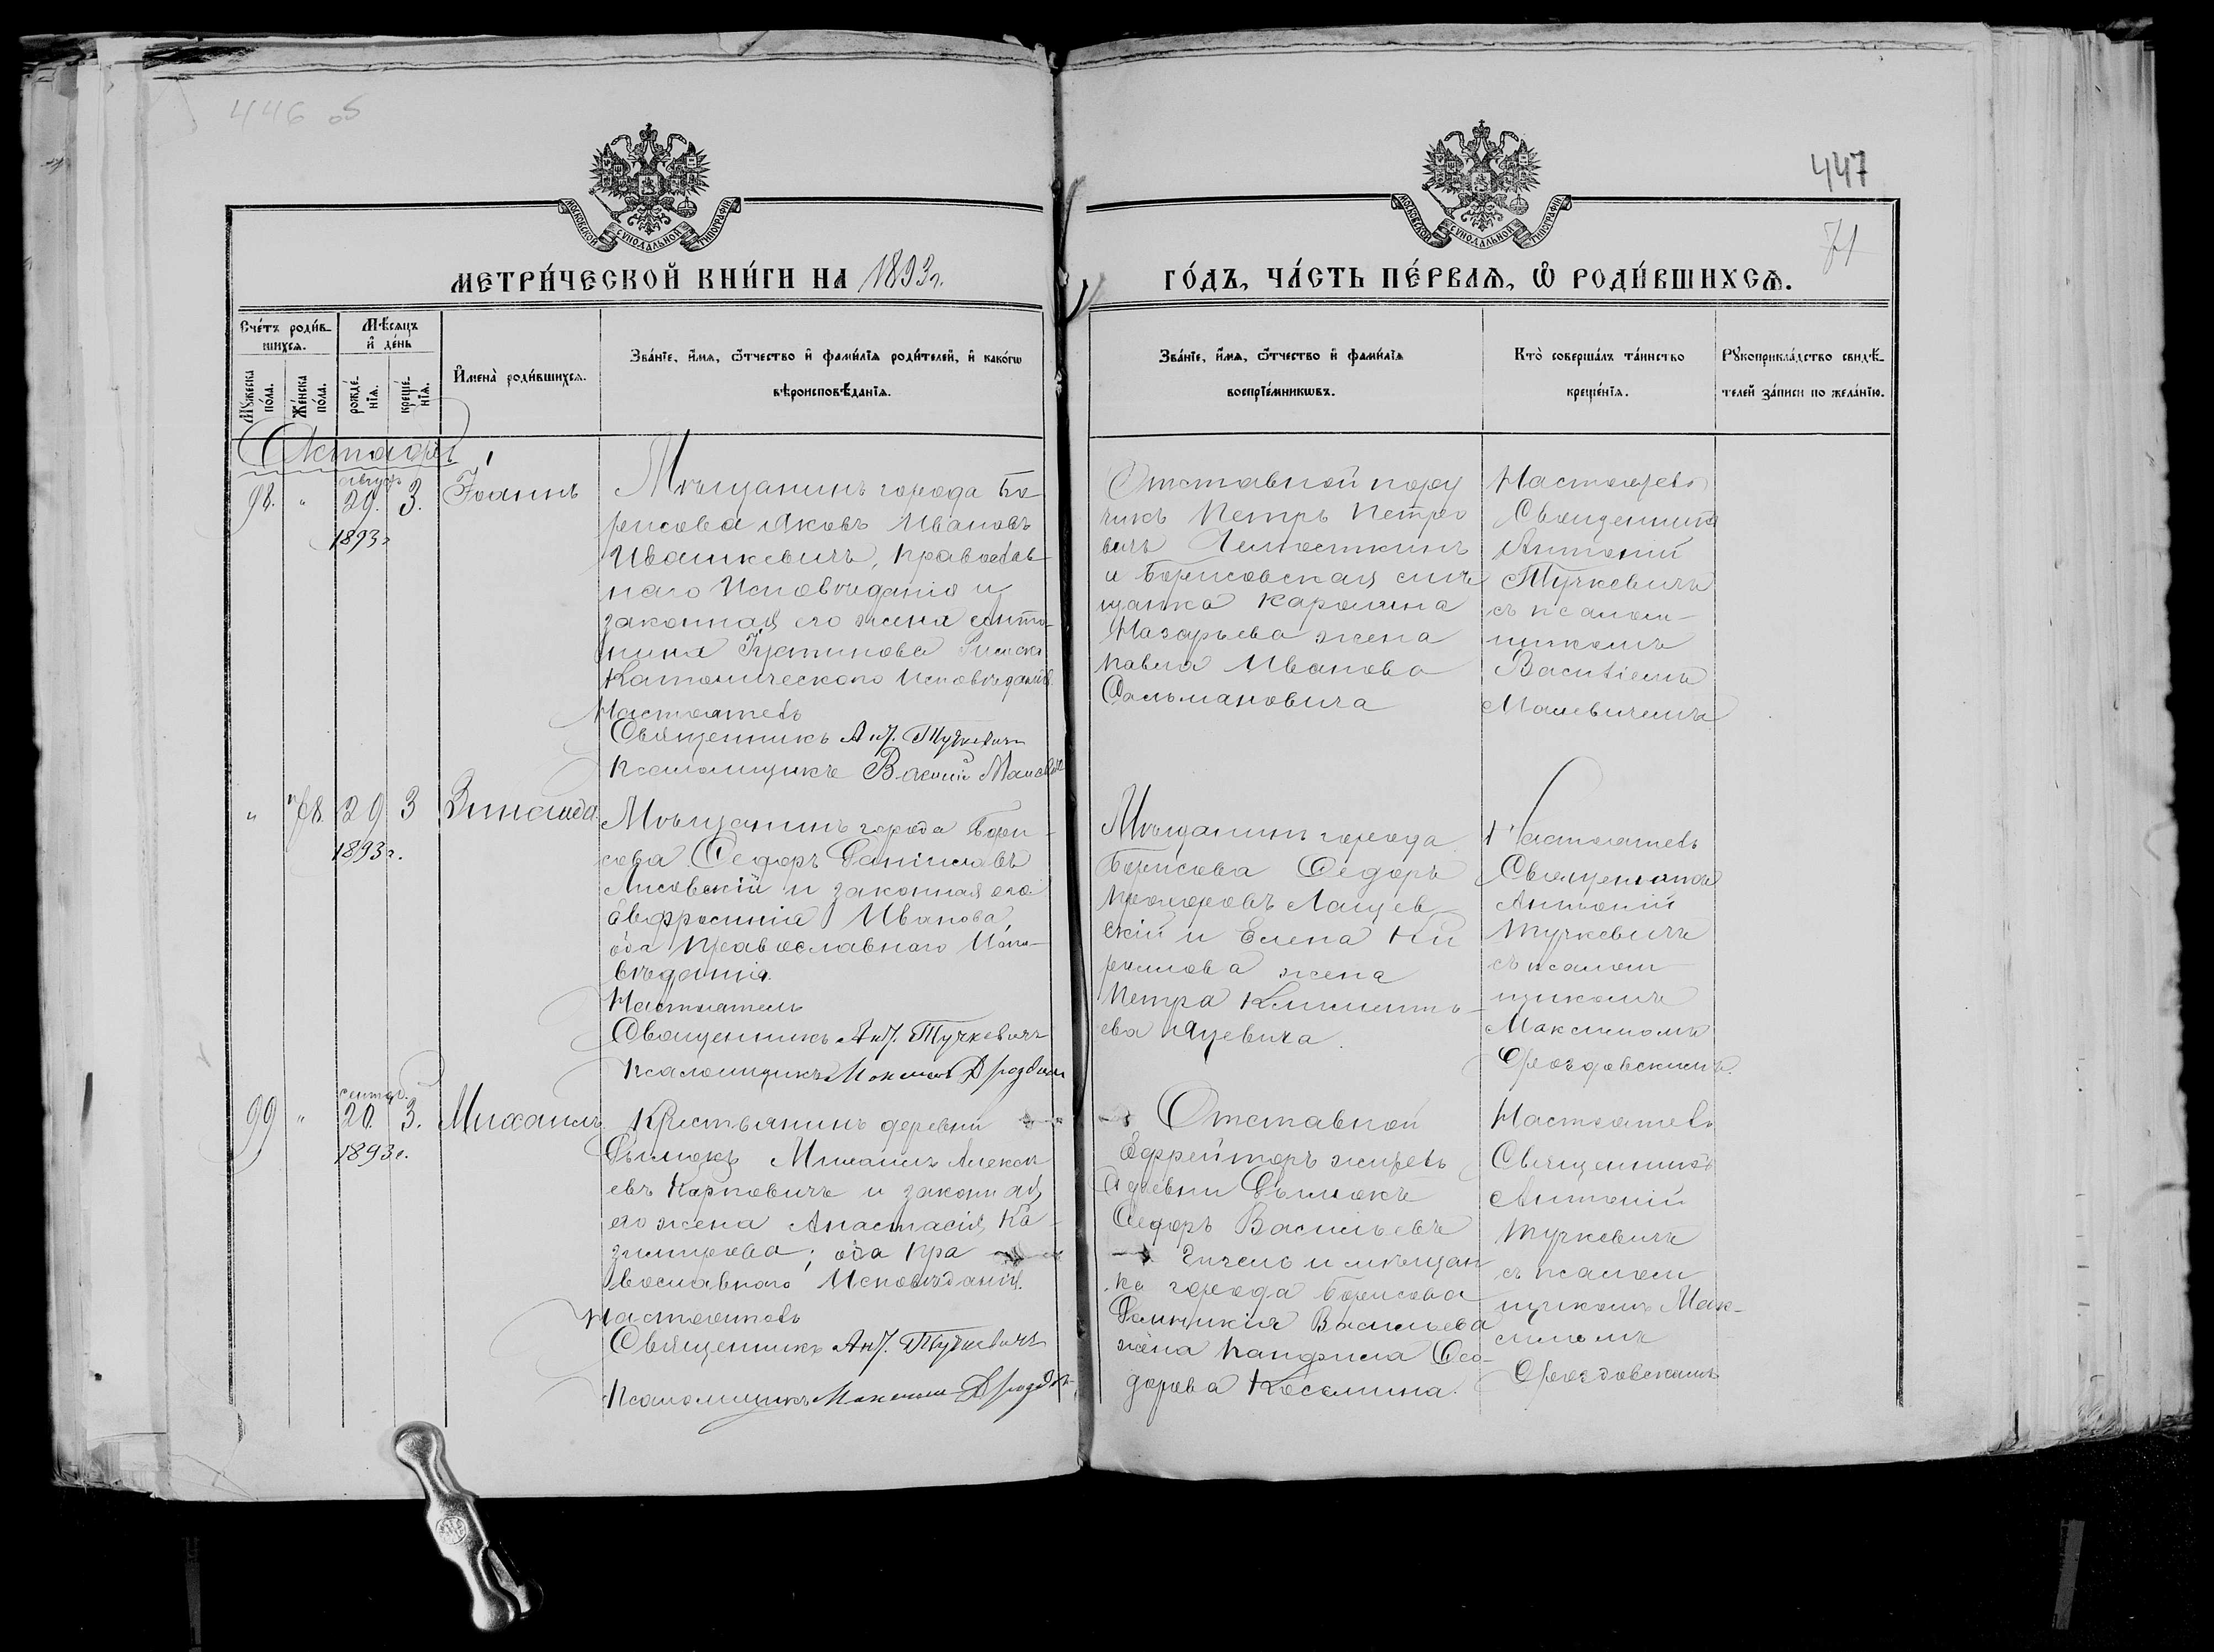 446 об
447
71
МОСКОВСКОЙ СѴНОДАЛЬНОЙ ТИПОГРАФІИ
МОСКОВСКОЙ СѴНОДАЛЬНОЙ ТИПОГРАФІИ
МЕТРИ́ЧЕСКОЙ КНИ́ГИ НА 1893 г.
ГО́ДЪ, ЧА́СТЬ ПЕ́РВАѦ, Ѽ РОДИ́ВШИХСѦ.
Сче́тъ роди́в-
шихсѧ.
Мꙋ́жеска по́ла.
Же́нска по́ла.
Мѣ́сѧцъ
и҆ де́нь
рожде́-
нїѧ.
креще́-
нїѧ.
И҆мена̀ роди́вшихсѧ.
Зва́нїе, и҆́мѧ, ѻ҆́тчество и҆ фами́лїѧ роди́телей, и҆ како́гѡ
вѣроисповѣ́данїѧ.
Зва́нїе, и҆́мѧ, ѻ҆́тчество и҆ фами́лїѧ
воспрїе́мникѡвъ.
Кто̀ соверша́лъ та́инство
креще́нїѧ.
Рꙋкоприкла́дство свидѣ́-
телей за́писи по жела́нїю.
Октябрь
98. " август. 29. 3. Іоаннъ
1893 г
Мѣщанинъ города Бо-
рисова Яковъ Ивановъ
Ивашкевичъ, православ-
наго Исповѣданія и
законная его жена Анто-
нина Іустинова Римско
Католическаго Исповѣданія.
Настоятель
Священникъ Ант. Тучкевичъ
Псаломщикъ Василій
Отставной пору
чикъ Петръ Петро
вичъ
и Борисовская мѣ
щанка Каролина
Назарьева жена
Павла Иванова
Сальмановича
Настоятель
Священникъ
Антоній
Тучкевичъ
съ псалом-
щикомъ
Василіемъ
" 78. 29 3 Зинаида
1893 г.
Мѣщанинъ города Бори-
сова Ѳедоръ
Лисовскій и законная его
Евфросинія Иванова,
оба Православнаго Испо-
вѣданія.
Настоятель
Священникъ Ант. Тучкевичъ
Псаломщикъ Максимъ
Мѣщанинъ города
Борисова Ѳедоръ
Прохоровъ
скій и Елена Ки
рилова жена
Петра Климентъ-
ева Яцевича.
Настоятель
Священникъ
Антоній
Тучкевичъ
съ псалом
щикомъ
Максимомъ
Дроздовскимъ.
99 " сентяб. 20. 3. Михаилъ
1893 г.
Крестьянинъ деревни
Дымокъ Михаилъ Алексѣ
евъ Карповичъ и законная
его жена Анастасія Ка-
зимірова; оба Пра
вославнаго Исповѣданія.
Настоятель
Священникъ Ант. Тучкевичъ
Псаломщикъ Максимъ
Отставной
Ефрейторъ житель
деревни Дымокъ
Ѳедоръ Васильевъ
и мѣщан
ка города Борисова
Домникія Васильева
жена Панфила Ѳео-
дорова
Настоятель
Священникъ
Антоній
Тучкевичъ
съ псалом
щикомъ Мак-
симомъ
Дроздовскимъ